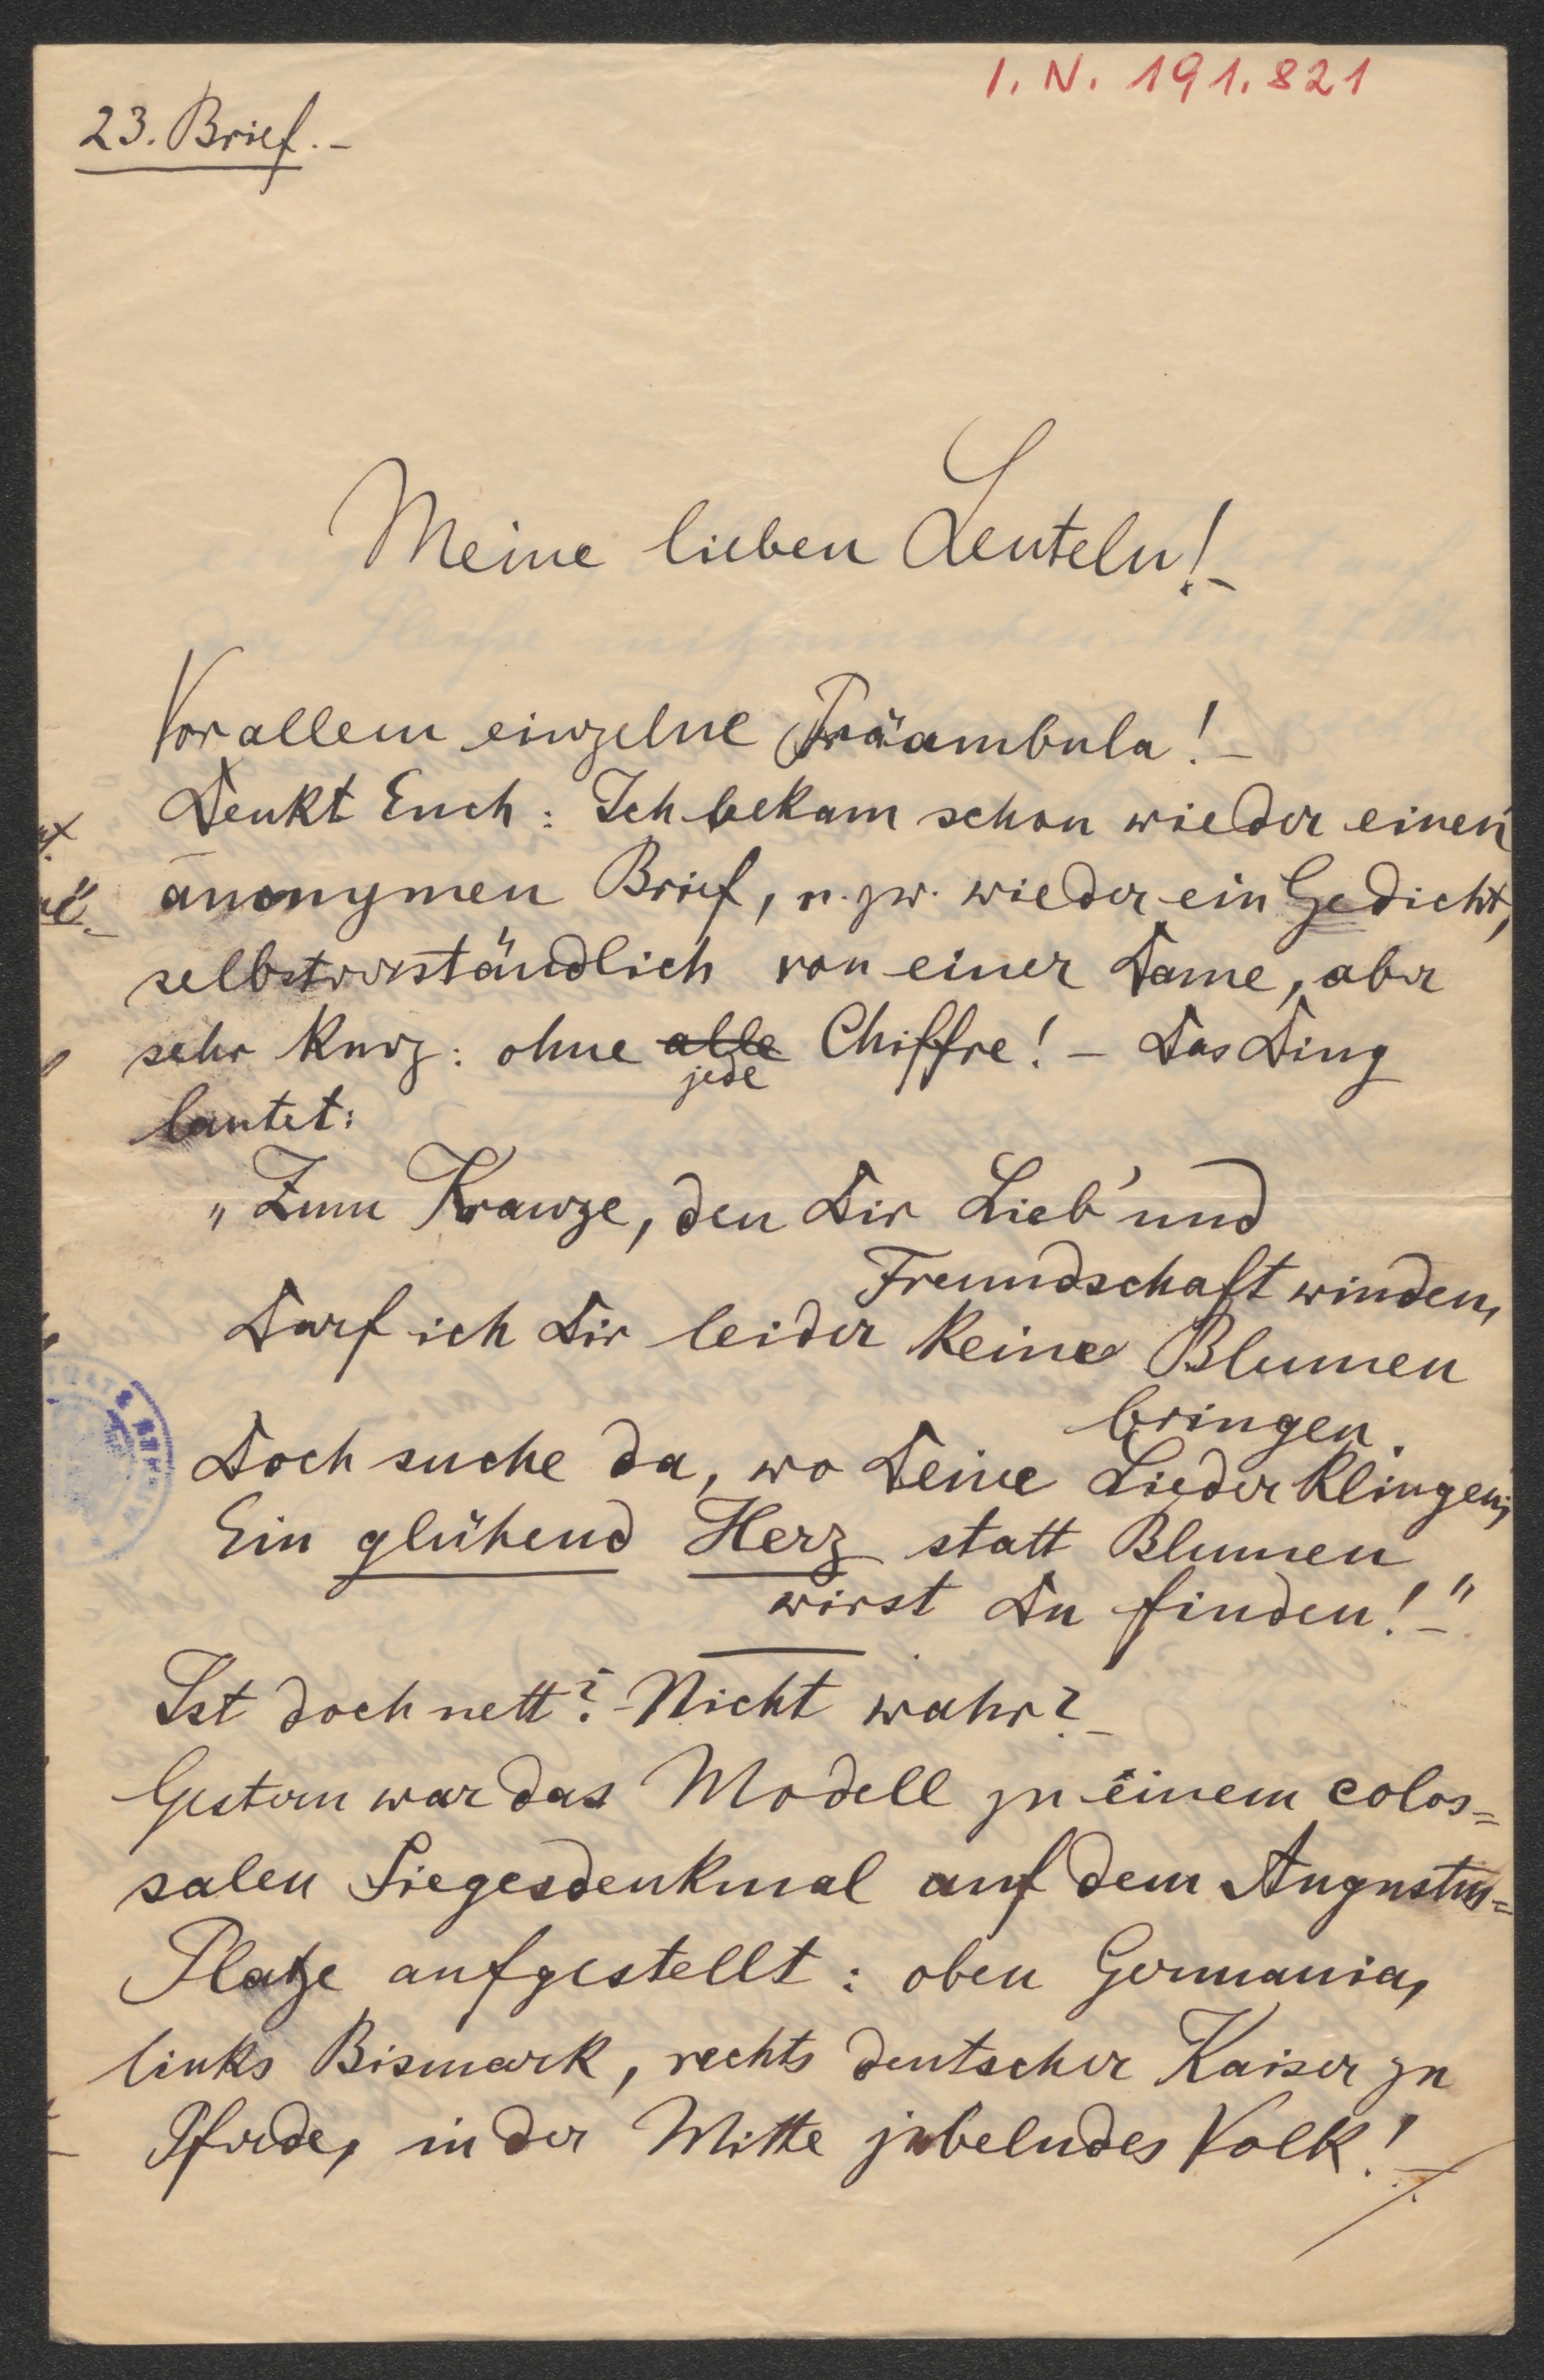 I. N. 191.821
23. Brief.-
Meine lieben Leuteln!-
Vor allem einzelne Präambula!-
Denkt Euch: Ich bekam schon wieder einen
anonymen Brief, u. zw. wieder ein Gedicht,
selbstverständlich von einer Dame, aber
sehr kurz: ohne alle Chiffre! - Das Ding
jede
lautet:
„Zum Kranze, den Dir Lieb' und
Freundschaft winden,
Darf ich Dir leider keine Blumen
bringen.
Doch suche da, wo Deine Lieder klingen,
Ein glühend Herz statt Blumen
wirst Du finden!-"
Ist doch nett? - Nicht wahr?-
Gestern war das Modell zu einem colos=
salen Siegesdenkmal auf dem Augustus=
Platze aufgestellt: oben Germania,
links Bismark, rechts deutscher Kaiser zu
Pferde, in der Mitte jubelndes Volk!-